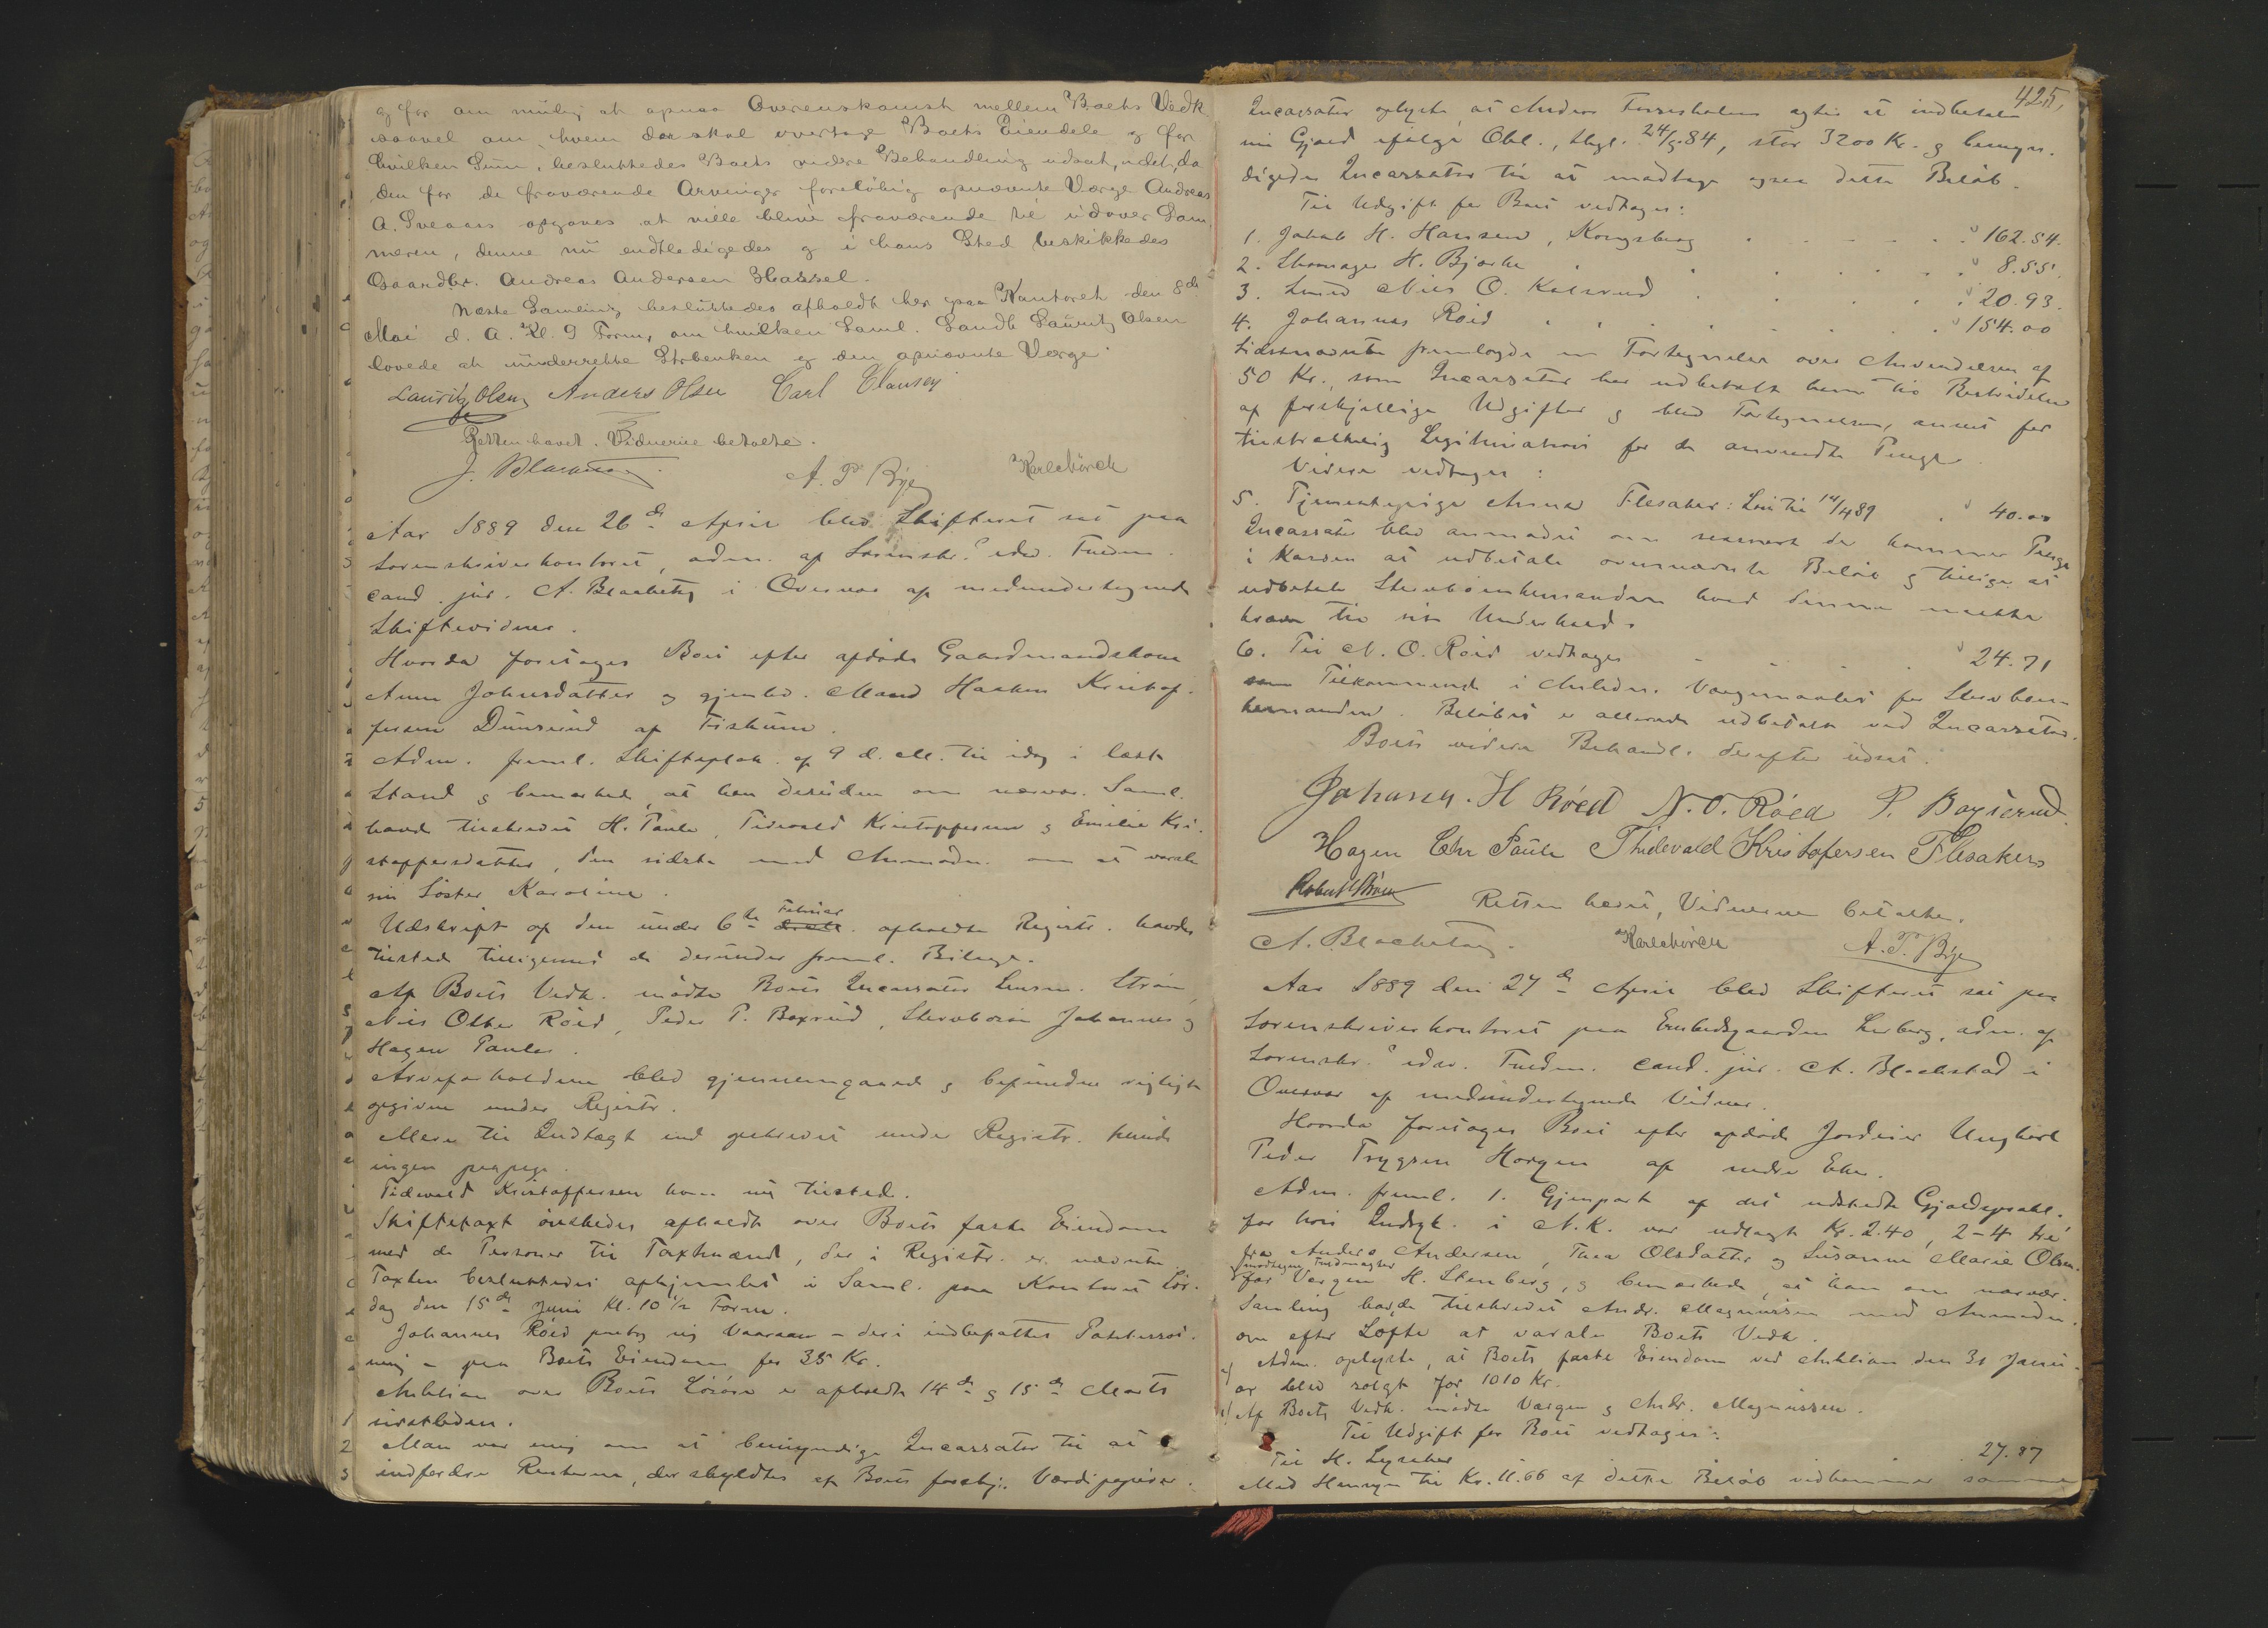 og for om mulig at opnaa Overenskomst mellem Boets Vedk.
saavel om hvem der skal overtage Boets Eiendele og for
hvilken Sum, besluttedes Boets videre Behandling udsat, idet, da
den for de fraværende Arvinger foreløbig opnævnte Værge Andreas
A. Sveaas opgaves at ville blive fraværende til udover Som
meren, denne nu entledigedes og i hans Sted beskikkedes
Gaardbr. Andreas Andersen Hassel.
Næste Samling besluttedes afholdt her paa Kontoret den 8de
Mai d. A. Kl. 9 Form, om hvilken Saml. Sandb Lauritz Olsen
lovede at underrette Strbenken og den opnævnte Værge.
Lauritz Olsen Anders Olsen Carl Clausen
Retten hævet. Vidnerne betalte.
J. Blackstad A. P. Bye Karl Mörch
Aar 1889 den 26de April blev Skifteret sat paa
Sorenskriverkontoret, adm. af Sorenskr.s edsv. Fuldm.
cand. jur. A. Blackstad i Overvær af medundertegnede
Skiftevidner.
Hvorda foretages Boet efter afdøde Gaardmandskone
Anne Johnsdatter og gjenlev. Mand Haaken Kristof-
fersen Dunserud af Fiskum.
Adm. freml. Skifteplak. af 9 d. M. til idag i læst
Stand og bemærkede, at han desuden om nærvær. Saml.
havde tilskrevet H. Paule, Tidevald Kristoffersen og Emilie Kri-
stoffersdatter, den sidste med Anmodn. om at varsle
sin Søster Karoline.
Udskrift af den under 6te Februar d. M. afholdte Registr. havdes
tilstede tilligemed de derunder freml. Bilage.
Af Boets Vedk. mødte Boets Incassator Lensm. Strøm,
Nils Olsen Röed, Peder P. Boxrud, Stervboim Johannes og
Hagen Paule.
Arveforholdene blev gjennemgaaede og befundne rigtigt
opgivne under Registr.
Mere til Indtægt end opskrevet under Registr. kunde
ingen paapege.
Tidevald Kristoffersen kom nu tilstede.
Skiftetaxt ønskedes afholdt over Boets faste Eiendom
med de Personer til Taxtmænd, der i Registr. er nævnte.
Taxten besluttedes afhjemlet i Saml. paa Kontoret Lör-
dag den 15de Juni Kl. 10 1/2 Form.
Johannes Röed paatog sig Vaaraan - deri indbefattet Potetessæt-
ning - paa Boets Eiendom for 35 Kr.
Auktion over Boets Lösöre er afholdt 14de og 15de Marts
sidstleden.
Man var enig om at bemyndige Incassator til at
indfordre Renterne, der skyldtes af Boets forskj. Værdipapirer.
425.
Incassator oplyste, at Anders Fossesholm agter at indbetale
sin Gjæld ifølge Obl., thgl. 24/5 84, stor 3200 Kr. og bemyn-
digedes Incassator til at modtage ogsaa dette Beløb.
Til Udgift for Boet vedtages:
1. Jakob H. Hansen, Kongsberg . . . . . 162.54.
2. Skomager H. Bjerke . . . . . 8.55.
3. Smed Nils O. Kolsrud . . . . 20.93.
4. Johannes Röed . . . . . . 154.00
Sidstnævnte fremlagde en Fortegnelse over Anvendelsen af
50 Kr., som Incassator har udbetalt ham til Bestridelse
af forskjellige Udgifter og blev Fortegnelsen, anseet for
tilstrækkelig Legitimation for de anvendte Penge.
Videre vedtages:
5. Tjenestepige Anna Flesaker: Løn til 14/4 89 . 40.00
Incassator blev anmodet om saasnart der kommer Penge
i Kassen at udbetale ovennævnte Beløb og tillige at
udbetale Stervboenkemanden hvad denne maatte
kræve til sit Underhold.
6. Til N. O. Röed vedtages . . . . 24.71
som Tilkommende i Anledn. Værgemaalet for Stervboen-
kemanden. Beløbet er allerede udbetalt ved Incassator.
Boets videre Behandl. derefter udsat.
Johannes. H Röed N. O. Röed P. Boxerud
Hagen Chr Paule Thidevald Kristofersen Flesaker
Robert Strøm Retten hævet, Vidnerne betalte.
A. Blackstad. Karl Mörch A. P. Bye
Aar 1889 den 27de April blev Skifteret sat paa
Sorenskriverkontoret paa Embedsgaarden Lerberg, adm. af
Sorenskr.s edsv. Fuldm. cand. jur. A. Blackstad i
Overvær af medundertegnede Vidner.
Hvorda foretages Boet efter afdøde Jordeier Ungkarl
Peder Trygsen Horgen af nedre Eker.
Adm. freml. 1. Gjenpart af det udstedte Gjældsprokl.
for hvis Indryk. i N. K. var udlagt Kr. 2.40, 2-4 tre
fra Anders Andersen, Thea Olsdatter og Susanne Marie Olsen
modtagne Fuldmagter
for Værgen H. Stenberg, og bemærkede, at han om nærvær.
Samling havde tilskrevet Andr. Magnussen med Anmodn.
om efter Løfte at varsle Boets Vedk.
Adm. oplyste, at Boets faste Eiendom ved Auktion den 31 Janu-
ar blev solgt for 1010 Kr.
Af Boets Vedk. mødte Værgen og Andr. Magnussen.
Til Udgift for Boet vedtages:
Til H. Lysaker . . . . 27.87
Med Hensyn til Kr. 11.66 af dette Beløb vedkommer samme